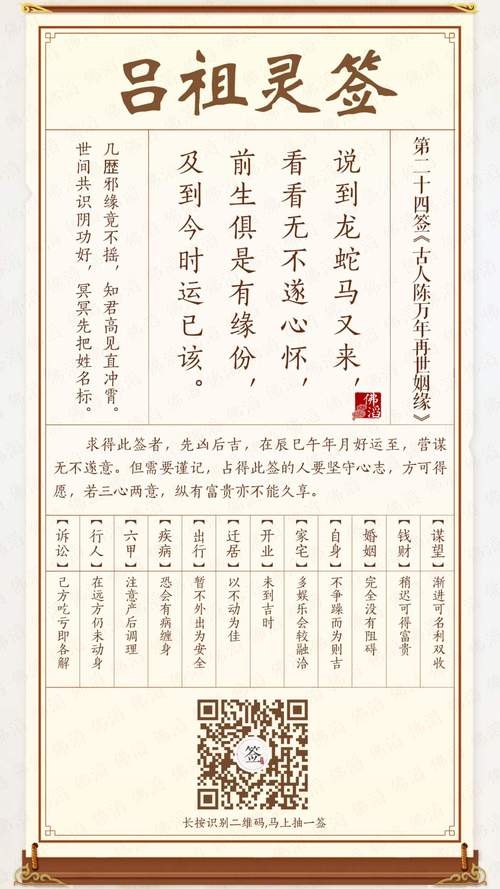 吕祖灵签
第二十四签《古人陈万年再世姻缘》
说到龙蛇马又来，
看看无不遂心怀，
前生俱是有缘份，
及到今时运已该。
佛滔
几歷邪缘竟不摇，知君高见直冲霄。
世间共识阴功好，冥冥先把姓名标。
求得此签者，先凶后吉，在辰巳午年月好运至，营谋
无不遂意。但需要谨记，占得此签的人要坚守心志，方可得
愿，若三心两意，纵有富贵亦不能久享。
【谋望】渐进可名利双收
【钱财】稍迟可得富贵
【婚姻】完全没有阻碍
【自身】不争躁而为则吉
【家宅】多娱乐会较融洽
【开业】未到吉时
【迁居】以不动为佳
【出行】暂不外出为安全
【疾病】恐会有病缠身
【六甲】注意产后调理
【行人】在远方仍未动身
【诉讼】己方吃亏即各解
签
长按识别二维码,马上抽一签